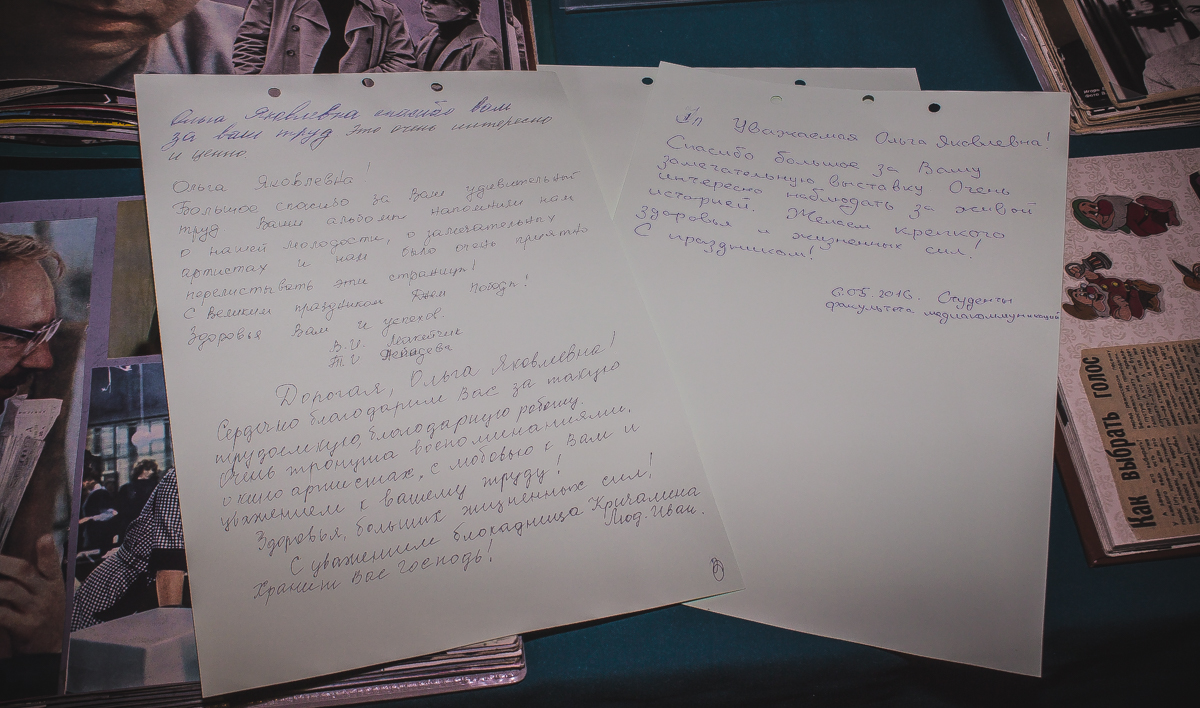 Ольга Яковлевна спасибо вам
за ваш труд это очень интересно
и ценно.
Ольга Яковлевна!
Большое спасибо за Ваш удивительный
труд. Ваши альбомы напомнили нам
о нашей молодости, о замечательных
артистах и нам было очень приятно
перелистывать эти страницы!
С Великим праздником Днем Победы!
Здоровья Вам и успехов.
В.И.
Т.И
Дорогая, Ольга Яковлевна!
Сердечно благодарим Вас за такую
трудоемкую, благодарную работу.
Очень тронута воспоминаниями,
о кино артистах, с любовью к Вам и
уважением к вашему труду!
Здоровья, больших жизненных сил!
С уважением блокадница Кричалина
Люд. Иван.
Храни Вас Господь!
Уважаемая Ольга Яковлевна!
Спасибо большое за Вашу
замечательную выставку Очень
интересно наблюдать за живой
историей. Желаем крепкого
здоровья и жизненных сил!
С праздником!
6.05.2016. Студенты
факультета медиакоммуникаций
Как выбрать голос